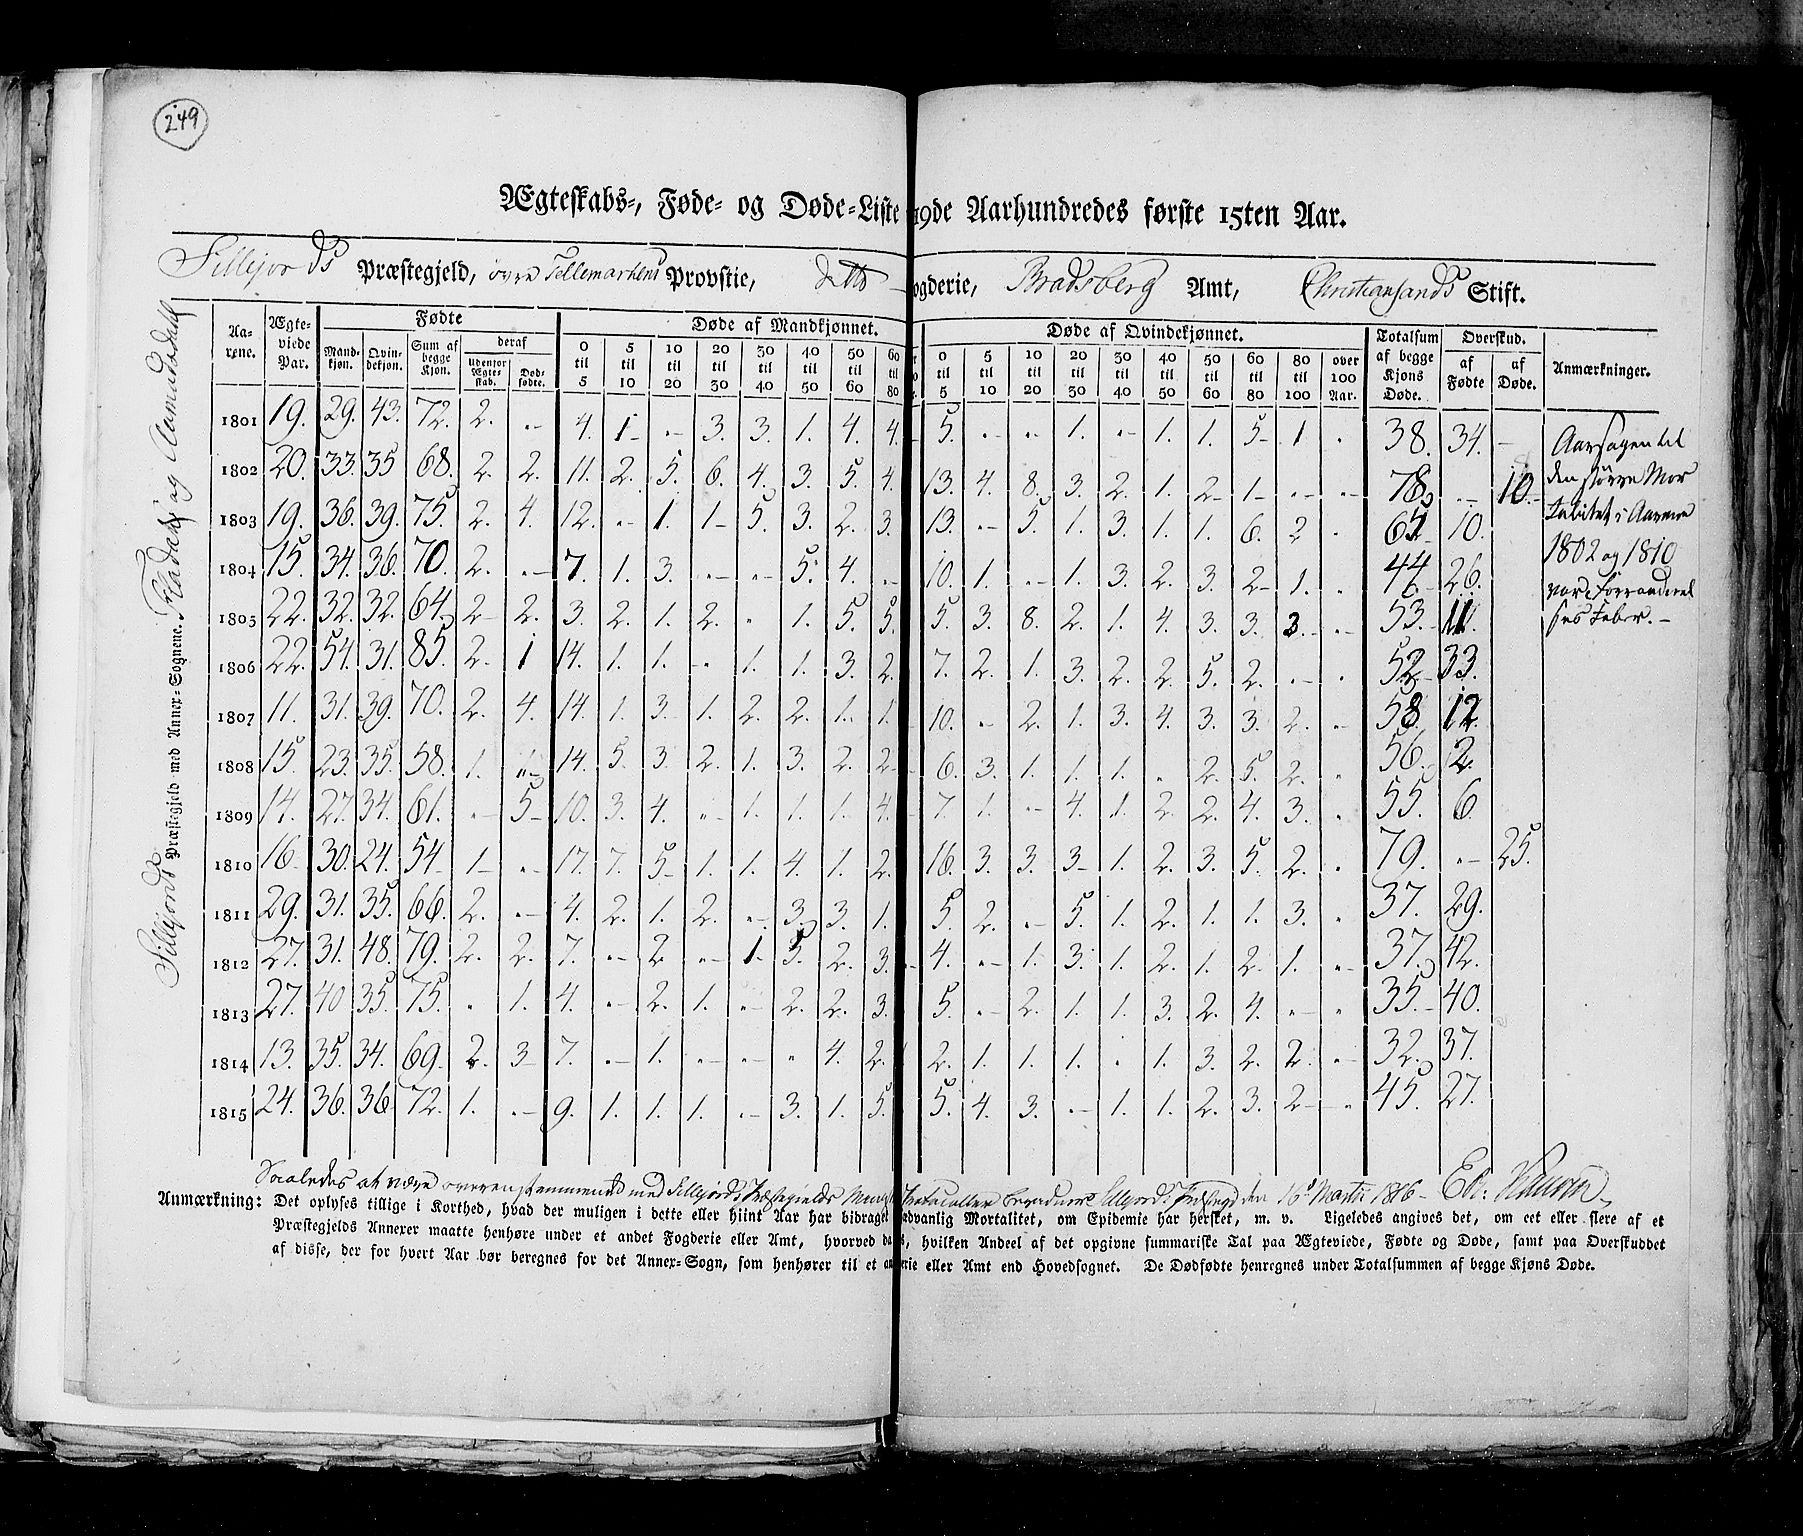 249
Ægteskabs-, Føde- og Døde-Liste 19de Aarhundredes første 15ten Aar.
Sillejords Præstegjeld, övre Tellemarkens Provstie, ditto ogderie, Bradsberg Amt, Christiansands Stift.
Sillejords Præstegjeld med Annex-Sognene. Fladdahl og Aamodsdahl
Aa- rene. Ægte- viede Par. Fødte Døde af Mandkjønnet. Døde af Qvindekjønnet. Totalsum af begge Kjøns Døde. Overskud. Anmærkninger.
Mand- kjøn. Qvin- dekjøn. Sum af begge Kjøn. deraf af Fødte af Døde.
udenfor Ægte- skab. Død- fødte.
0 til 5 5 til 10 10 til 20 20 til 30 30 til 40 40 til 50 50 til 60 60 til 80 0 til 5 5 til 10 10 til 20 20 til 30 30 til 40 40 til 50 50 til 60 60 til 80 80 til 100 over 100 Aar.
1801 19. 29. 43. 72. 2. „- 4. 1- „- 3. 3. 1. 4. 4. 5. „- „- 1. „- 1. 1. 5- 1. „ 38. 34. -
1802 20. 33. 35 68. 2. 2. 11. 2. 5. 6. 4. 3. 5. 4. 13. 4. 8. 3. 2. 1. 2- 1- „- „- 78. „- 10.
1803 19. 36. 39. 75. 2. 4. 12. „- 1. 1- 5. 3. 2. 3. 13. „- 5. 1. 3. 1. 1. 6. 2 „ 65 10.
1804 15. 34. 36. 70. 2. „- 7. 1. 3. „- „- 5. 4. „- 10. 1. „- 1. 3. 2. 3. 2- 1. „ 44 26.
1805 22. 32. 32. 64. 2- 2. 3. 2. 1. 2. „ 1. 5. 5. 5. 3. 8. 2. 1. 4. 3. 3. 3. „- 53. 11.
1806 22. 54. 31. 85. 2. 1 14. 1. 1. „ 1. 1. 3. 2. 7. 2. 1. 3. 2. 2. 5. 2. „- „ 52 33.
1807 11. 31. 39. 70. 2. 4. 14. 1. 3. 1. 2. 2. 1. 1. 10. „ 2. 1. 3. 4. 3. 3. 2. „ 58. 12.
1808 15. 23. 35. 58. 1. „- 14. 5. 3. 2. 1. 3. 2. 2. 6. 3. 1. 1. 1. „ 2. 5. 2. „ 56. 2.
1809 14. 27. 34. 61. „- 5- 10. 3. 4. „- 1. 1. 1. 4. 7. 1. „- 4. 1. 2 2. 4. 3. „ 55. 6.
1810 16 30. 24. 54- 1- „ 17. 7. 5- 1. 1. 4. 1. 2. 16. 3. 3. 3- 1. 2. 3. 5. 2. „ 79. „- 25.
1811 29. 31. 35. 66. 2. „- 4. 2. 1. 2. „- 3. 3. 1. 5. 2. „- 5. 1. 2. 1. 1. 3. „ 37. 29.
1812 27. 31. 48. 79. 2. 2. 7. „- 2 „- 1 5. 2. 3. 4. „- 1. 3. 1. 2. 1. 2. 1. „- 37. 42.
1813 27. 40 35. 75. „ 1. 4. „- 2. 1. „- 2. 2. 3. 5. „- 2. 1. 1. 3. 2. 4. „- „ 35. 40.
1814 13. 35. 34. 69. 2. 3- 7. „- 1. „- „- „ 4. 2. 2. 1. 1. 1. „ 1. 3. 2. 2. „- 32. 37.
1815 24. 36. 36 72. 1. „- 9. 1. 1. 1. „- 3. 1. 5. 5. 4. 3. „- 1. 1. 2. 3. 2- „ 45. 27.
Aarsagen til
den större Mor
talitet i Aarene
1802 og 1810
var Forraadnel
ses Feber.-
Saaledes at være overeenstemmende med Sillejords Præstegields Protocoller Sillejords den 16de Martii 1816-
Anmærkning: Det oplyses tillige i Korthed, hvad der muligen i dette eller hiint Aar har bidraget edvanlig Mortalitet, om Epidemie har hersket, m. v. Ligeledes angives det, om eet eller flere af et
Præstegjelds Annexer maatte henhøre under et andet Fogderie eller Amt, hvorved da, hvilken Andeel af det opgivne summariske Tal paa Ægteviede, Fødte og Døde, samt paa Overskuddet
af disse, der for hvert Aar bør beregnes for det Annex-Sogn, som henhører til et an rie eller Amt end Hovedsognet. De Dødfødte henregnes under Totalsummen af begge Kjøns Døde.